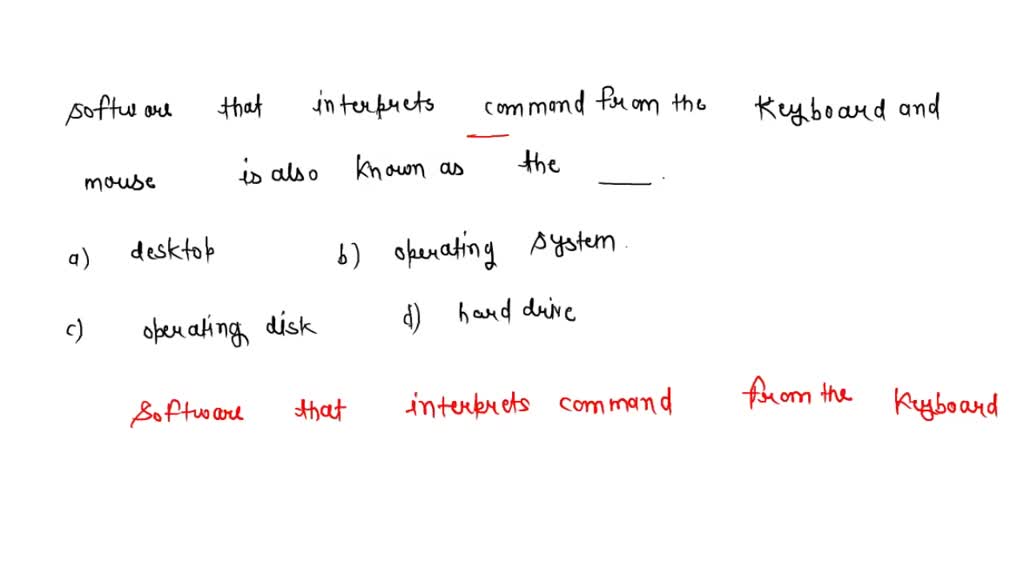 software that interprets command from the Keyboard and
mouse is also known as the ___.
a) desktop b) operating system.
c) operating disk d) hard drive
Software that interprets command from the Keyboard